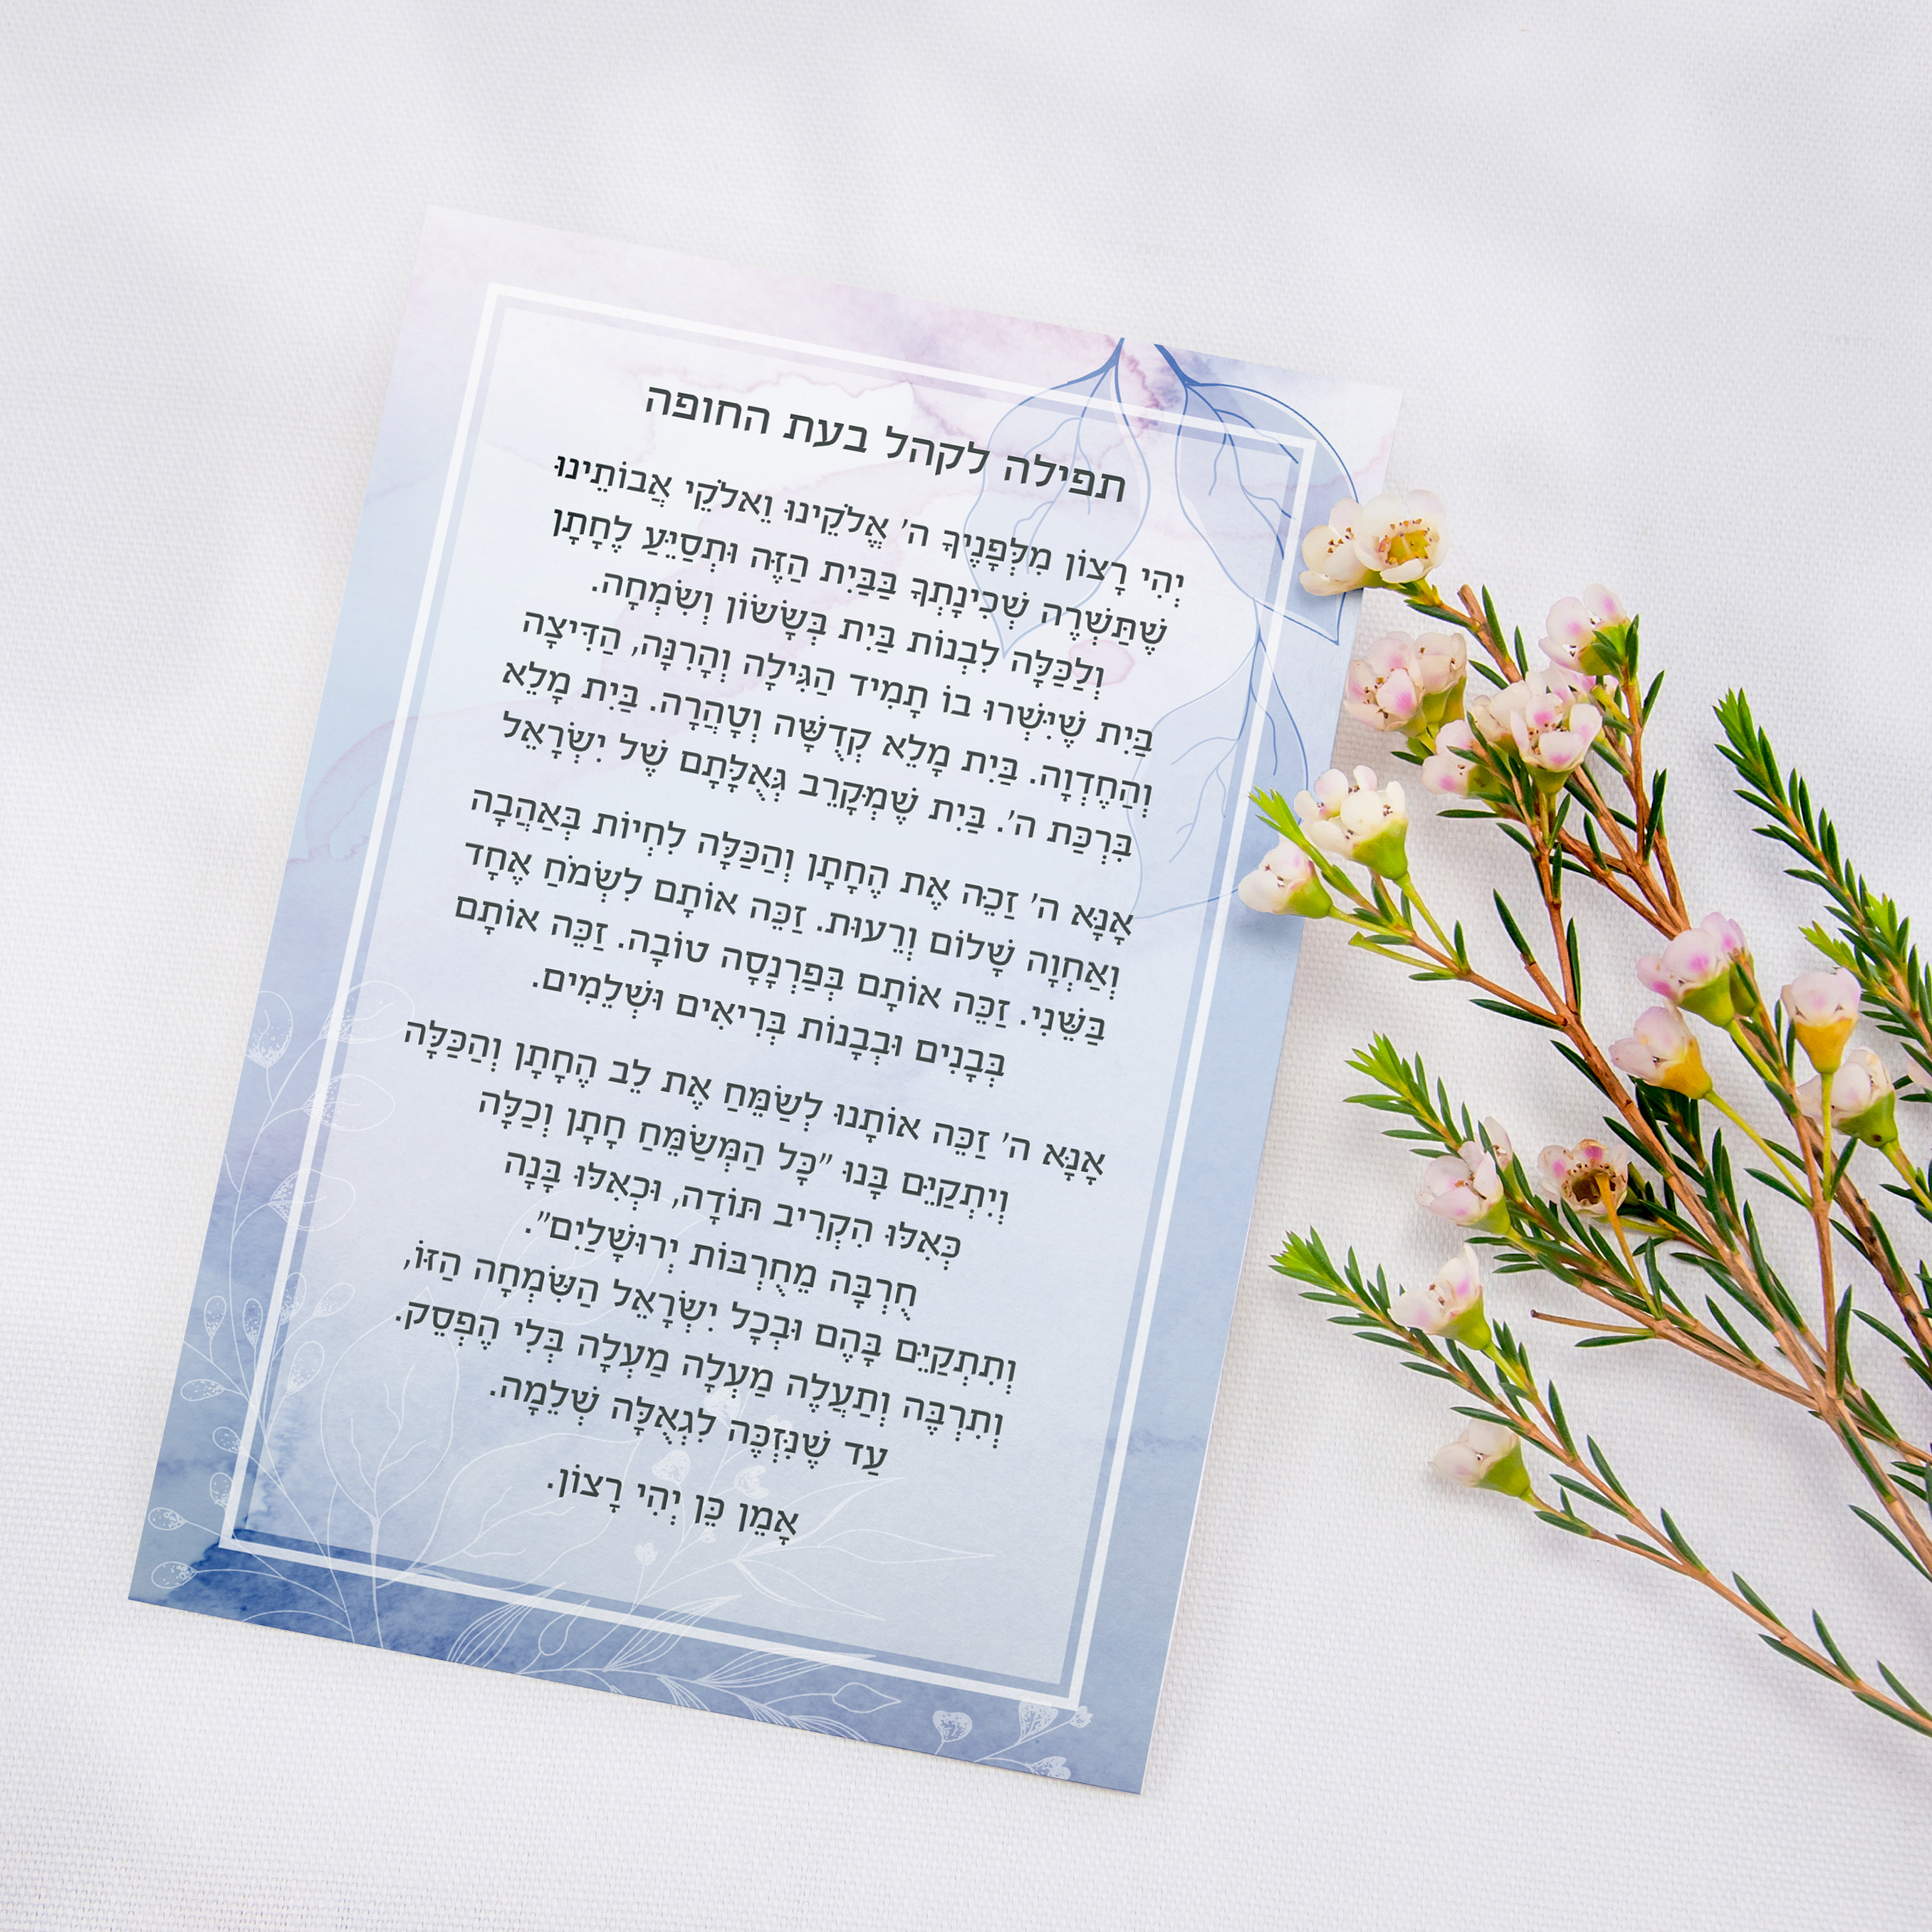 תפילה לקהל בעת החופה
יְהִי רָצוֹן מִלְּפָנֶיךָ ה' אֱלֹקֵינוּ וֵאלֹקֵי אֲבוֹתֵינוּ
שֶׁתַּשְׁרֶה שְׁכִינָתְךָ בַּבַּיִת הַזֶּה וּתְסַיֵּעַ לֶחָתָן
וְלַכַּלָּה לִבְנוֹת בַּיִת בְּשָׂשׂוֹן וְשִׂמְחָה.
בַּיִת שֶׁיִּשְׁרוּ בוֹ תָמִיד הַגִּילָה וְהָרִנָּה, הַדִּיצָה
וְהַחֶדְוָה. בַּיִת מָלֵא קְדֻשָּׁה וְטָהֳרָה. בַּיִת מָלֵא
בִּרְכַּת ה'. בַּיִת שֶׁמְּקָרֵב גְּאֻלָּתָם שֶׁל יִשְׂרָאֵל
אָנָּא ה' זַכֵּה אֶת הֶחָתָן וְהַכַּלָּה לִחְיוֹת בְּאַהֲבָה
וְאַחְוָה שָׁלוֹם וְרֵעוּת. זַכֵּה אוֹתָם לִשְׂמֹחַ אֶחָד
בַּשֵּׁנִי. זַכֵּה אוֹתָם בְּפַרְנָסָה טוֹבָה. זַכֵּה אוֹתָם
בְּבָנִים וּבְבָנוֹת בְּרִיאִים וּשְׁלֵמִים.
אָנָּא ה' זַכֵּה אוֹתָנוּ לְשַׂמֵּחַ אֶת לֵב הֶחָתָן וְהַכַּלָּה
וְיִתְקַיֵּם בָּנוּ "כָּל הַמְּשַׂמֵּחַ חָתָן וְכַלָּה
כְּאִלּוּ הִקְרִיב תּוֹדָה, וּכְאִלּוּ בָּנָה
חֻרְבָּה מֵחֻרְבּוֹת יְרוּשָׁלַיִם".
וְתִתְקַיֵּם בָּהֶם וּבְכָל יִשְׂרָאֵל הַשִּׂמְחָה הַזּוֹ,
וְתִרְבֶּה וְתַעֲלֶה מַעְלָה מַעְלָה בְּלִי הֶפְסֵק.
עַד שֶׁנִּזְכֶּה לִגְאֻלָּה שְׁלֵמָה.
אָמֵן כֵּן יְהִי רָצוֹן.